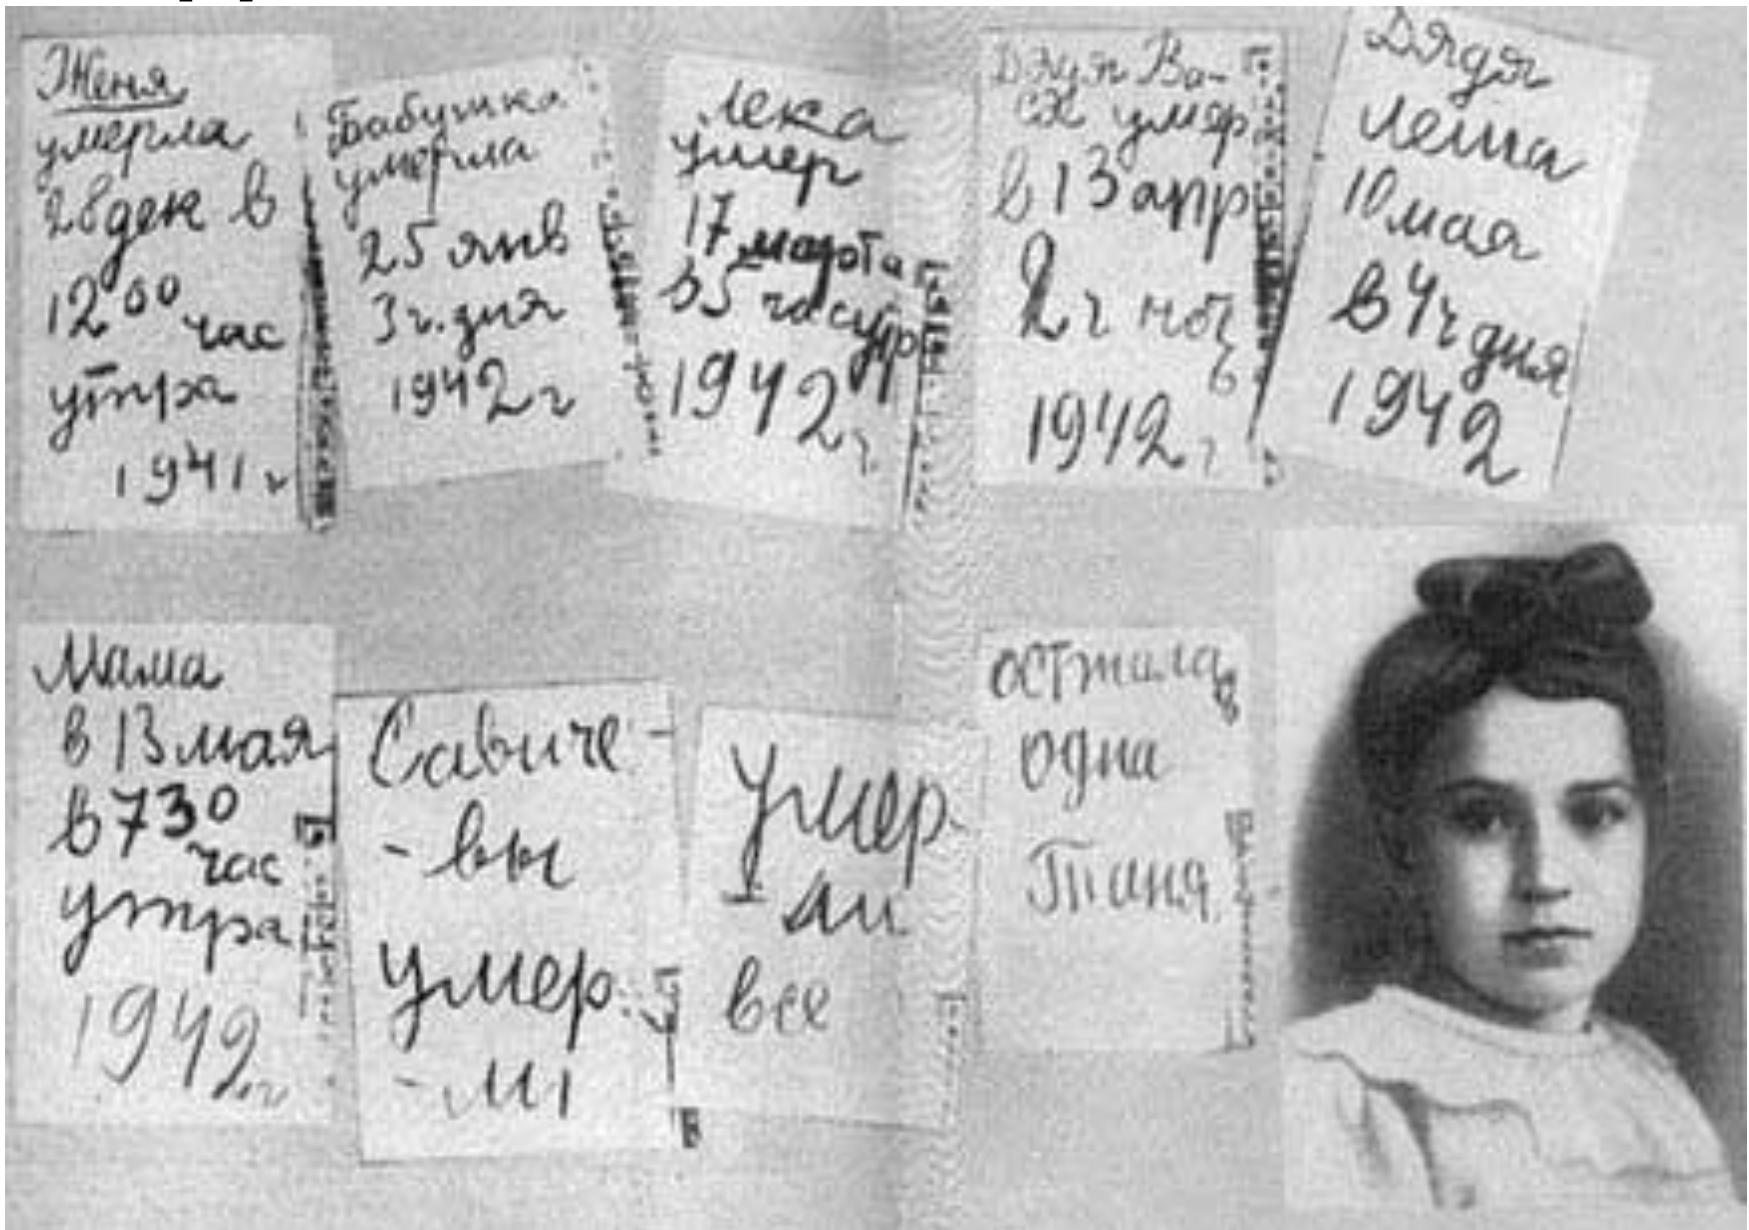 Женя
умерла
28 дек в
12 00 час
утра
1941 г
Бабушка
умерла
25 янв
3 ч. дня
1942 г
Лека
умер
17 марта
в 5 час утр
1942 г
Дядя Ва-
ся умер
в 13 апр
2 ч ноч
ь
1942 г
Дядя
Леша
10 мая
в 4 ч дня
1942
Мама
в 13 мая
в 7 30
час
утра
1942 г
Савиче-
-вы
умер
-ли
Умер-
ли
все
одна
Таня